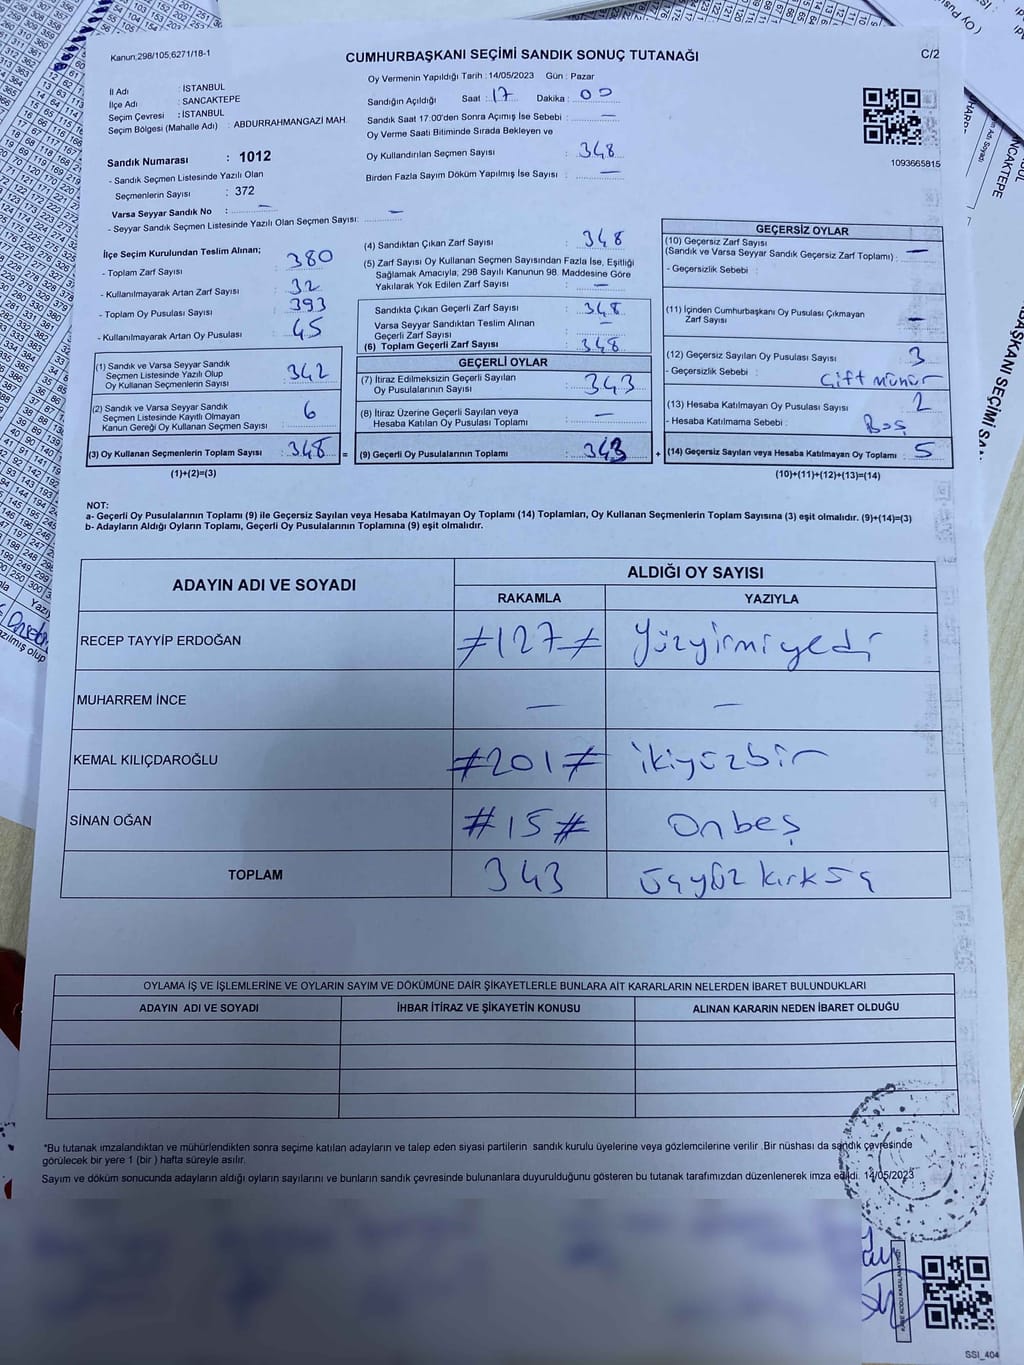 Kanun;298/105;6271/18-1
CUMHURBAŞKANI SEÇİMİ SANDIK SONUÇ TUTANAĞI
C/2
Oy Vermenin Yapıldığı Tarih : 14/05/2023 Gün : Pazar
İl Adı : İSTANBUL
İlçe Adı : SANCAKTEPE
Seçim Çevresi : İSTANBUL
Seçim Bölgesi (Mahalle Adı) : ABDURRAHMANGAZİ MAH.
Sandığın Açıldığı Saat : 17 Dakika : 00
Sandık Saat 17:00'den Sonra Açımış İse Sebebi : —
Oy Verme Saati Bitiminde Sırada Bekleyen ve
Oy Kullandırılan Seçmen Sayısı : 348
Birden Fazla Sayım Döküm Yapılmış İse Sayısı : —
1093665815
Sandık Numarası : 1012
- Sandık Seçmen Listesinde Yazılı Olan
Seçmenlerin Sayısı : 372
Varsa Seyyar Sandık No : —
- Seyyar Sandık Seçmen Listesinde Yazılı Olan Seçmen Sayısı: —
İlçe Seçim Kurulundan Teslim Alınan;
- Toplam Zarf Sayısı : 380
- Kullanılmayarak Artan Zarf Sayısı : 32
- Toplam Oy Pusulası Sayısı : 393
- Kullanılmayarak Artan Oy Pusulası : 45
(1) Sandık ve Varsa Seyyar Sandık
Seçmen Listesinde Yazılı Olup
Oy Kullanan Seçmenlerin Sayısı : 342
(2) Sandık ve Varsa Seyyar Sandık
Seçmen Listesinde Kayıtlı Olmayan
Kanun Gereği Oy Kullanan Seçmen Sayısı : 6
(3) Oy Kullanan Seçmenlerin Toplam Sayısı : 348 =
(1)+(2)=(3)
(4) Sandıktan Çıkan Zarf Sayısı : 348
(5) Zarf Sayısı Oy Kullanan Seçmen Sayısından Fazla İse, Eşitliği
Sağlamak Amacıyla; 298 Sayılı Kanunun 98. Maddesine Göre
Yakılarak Yok Edilen Zarf Sayısı : —
Sandıkta Çıkan Geçerli Zarf Sayısı : 348
Varsa Seyyar Sandıktan Teslim Alınan
Geçerli Zarf Sayısı : —
(6) Toplam Geçerli Zarf Sayısı : 348
GEÇERLİ OYLAR
(7) İtiraz Edilmeksizin Geçerli Sayılan
Oy Pusulalarının Sayısı : 343
(8) İtiraz Üzerine Geçerli Sayılan veya
Hesaba Katılan Oy Pusulası Toplamı : —
(9) Geçerli Oy Pusulalarının Toplamı : 343 +
GEÇERSİZ OYLAR
(10) Geçersiz Zarf Sayısı
(Sandık ve Varsa Seyyar Sandık Geçersiz Zarf Toplamı) : —
- Geçersizlik Sebebi :
(11) İçinden Cumhurbaşkanı Oy Pusulası Çıkmayan
Zarf Sayısı : —
(12) Geçersiz Sayılan Oy Pusulası Sayısı : 3
- Geçersizlik Sebebi : Çift mühür
(13) Hesaba Katılmayan Oy Pusulası Sayısı : 2
- Hesaba Katılmama Sebebi : Boş
(14) Geçersiz Sayılan veya Hesaba Katılmayan Oy Toplamı : 5
(10)+(11)+(12)+(13)=(14)
NOT:
a- Geçerli Oy Pusulalarının Toplamı (9) ile Geçersiz Sayılan veya Hesaba Katılmayan Oy Toplamı (14) Toplamları, Oy Kullanan Seçmenlerin Toplam Sayısına (3) eşit olmalıdır. (9)+(14)=(3)
b- Adayların Aldığı Oyların Toplamı, Geçerli Oy Pusulalarının Toplamına (9) eşit olmalıdır.
ADAYIN ADI VE SOYADI
ALDIĞI OY SAYISI
RAKAMLA YAZIYLA
RECEP TAYYİP ERDOĞAN #127# Yüzyirmiyedi
MUHARREM İNCE — —
KEMAL KILIÇDAROĞLU #201# ikiyüzbir
SİNAN OĞAN #15# Onbeş
TOPLAM 343 üçyüz kırk üç
OYLAMA İŞ VE İŞLEMLERİNE VE OYLARIN SAYIM VE DÖKÜMÜNE DAİR ŞİKAYETLERLE BUNLARA AİT KARARLARIN NELERDEN İBARET BULUNDUKLARI
ADAYIN ADI VE SOYADI İHBAR İTİRAZ VE ŞİKAYETİN KONUSU ALINAN KARARIN NEDEN İBARET OLDUĞU
*Bu tutanak imzalandıktan ve mühürlendikten sonra seçime katılan adayların ve talep eden siyasi partilerin sandık kurulu üyelerine veya gözlemcilerine verilir .Bir nüshası da sandık çevresinde
görülecek bir yere 1 (bir ) hafta süreyle asılır.
Sayım ve döküm sonucunda adayların aldığı oyların sayılarını ve bunların sandık çevresinde bulunanlara duyurulduğunu gösteren bu tutanak tarafımızdan düzenlenerek imza edildi. 14/05/2023
SSI_404